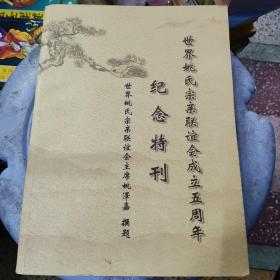 世界姚氏宗亲联谊会成立五周年
纪念特刊
世界姚氏宗亲联谊会主席姚泽嘉 撰题